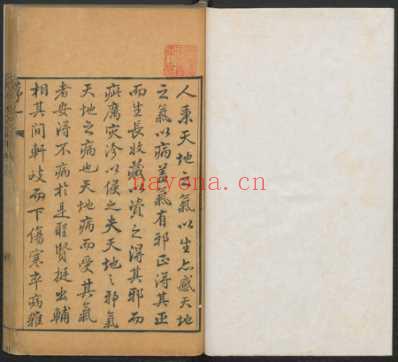 人秉天地之氣以生亦感天地
之氣以病蓋氣有邪正得其正
而生長收藏以資之得其邪而
疵癘灾沴以侵之夫天地之邪氣
天地之病也天地病而受其氣
者安得不病於是聖賢挺出輔
相其間軒岐而下傷寒卒病雜
序
一
nayona.cn